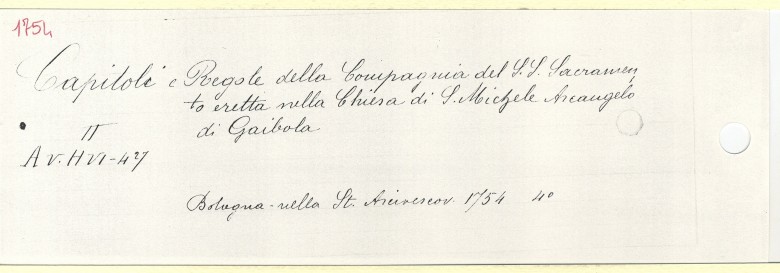 1754
Capitoli e Regole della Compagnia del S.S. Sacramen
to eretta nella Chiesa di S. Michele Arcangelo
di Gaibola
IT
A V. H VI - 427
Bologna - nella St. Arcivescov. 1754 4º